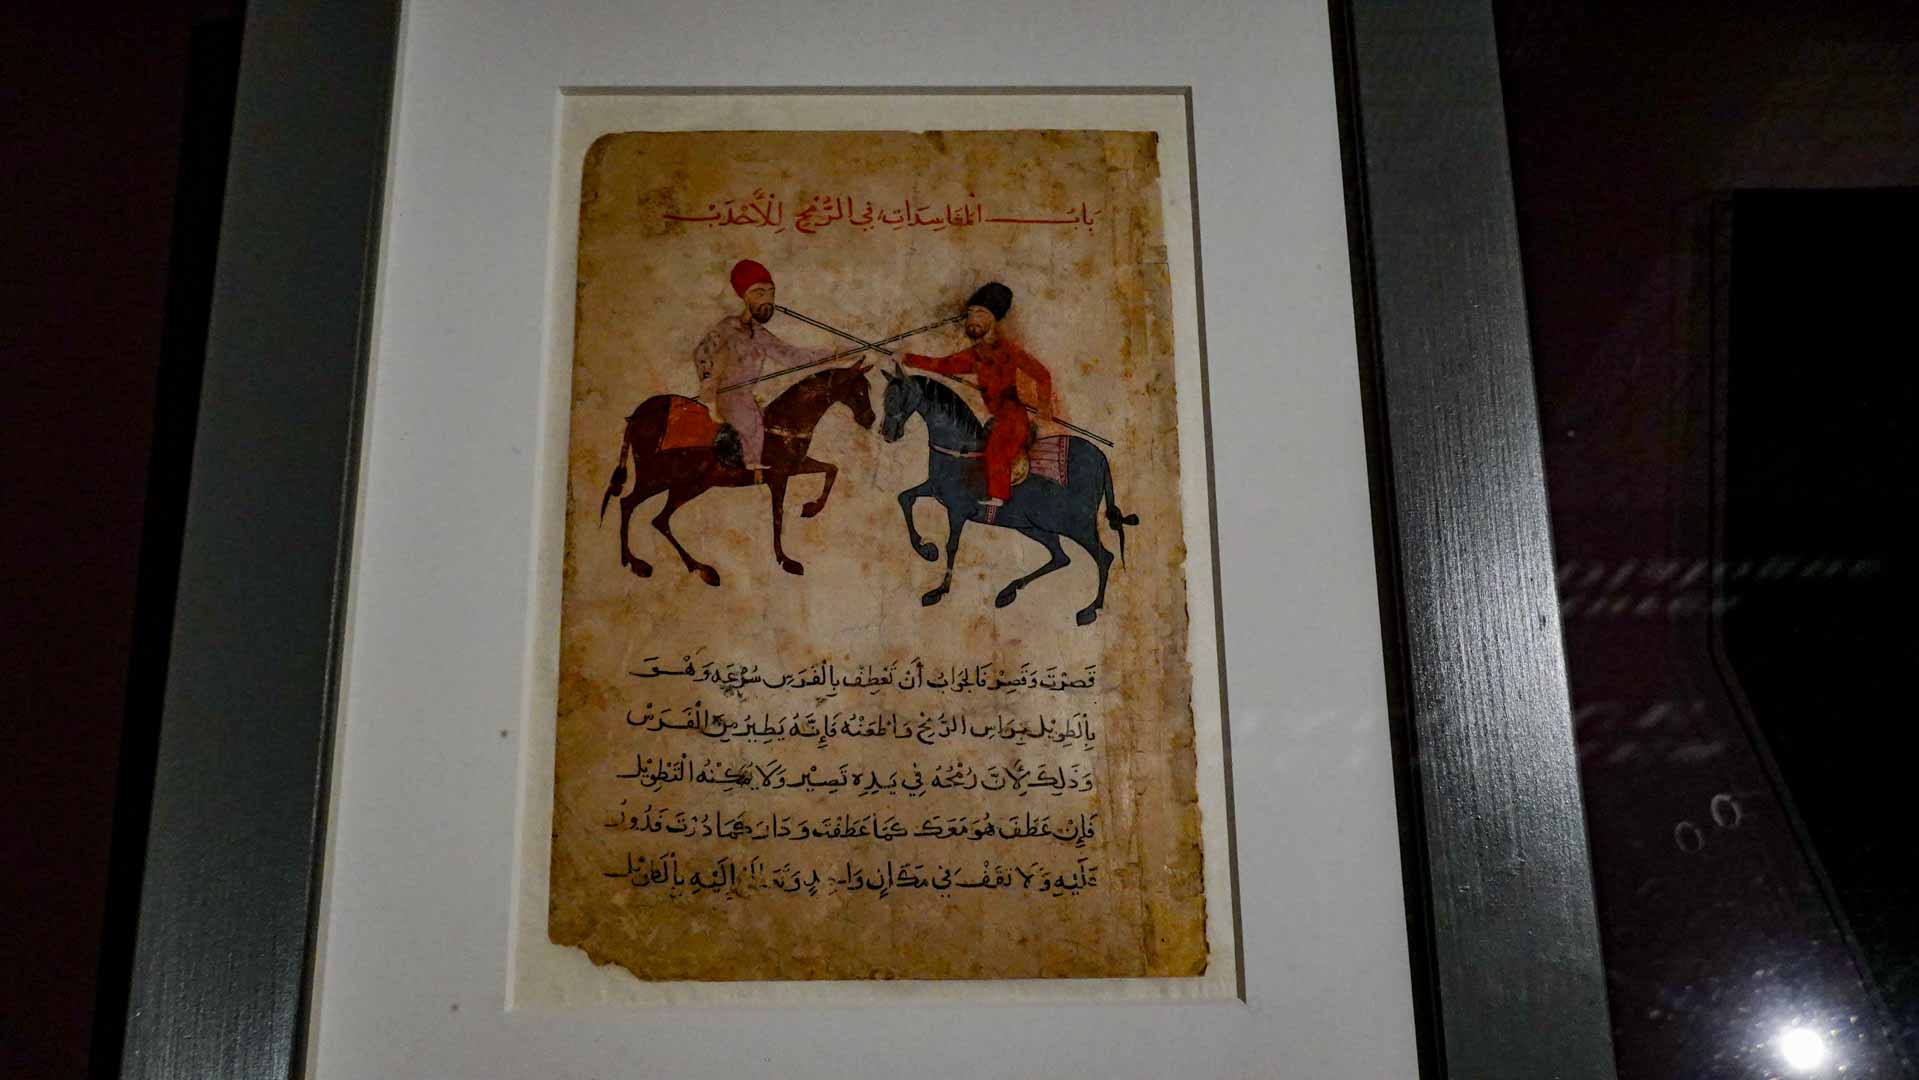 بَابُ المُفَاسِدَاتِ فِي الرُّمْحِ لِلْأَحْدَبْ
قَصَرْتَ وَقَصِرْ فَالجَوَابُ أَنْ تَعْطِفْ بِالْفَرَسِ سُرْعَه وَهْوَ
بِالْطَوِيْل بِرَاسِ الرُّمْحِ وَاطعَنْهُ فَإِنَّهُ يَطِيرُ مِنَ الْفَرَسْ
وَذَلِكَ لِأَنَّ رُمْحُهُ فِي يَدِهِ قَصِيْر وَلَا يُمْكِنْهُ التَطْوِيْل
فَإِنْ عَطَفَ هُوَ مَعَكَ كَمَا عَطَفْتَ وَدَارَ كَمَا دُرْتَ فَدُورْ
عَلَيْهِ وَلَا تَقَفْ فِي مَكَانٍ وَاحِدٍ إِلَيْهِ بِالْطَوِيْل